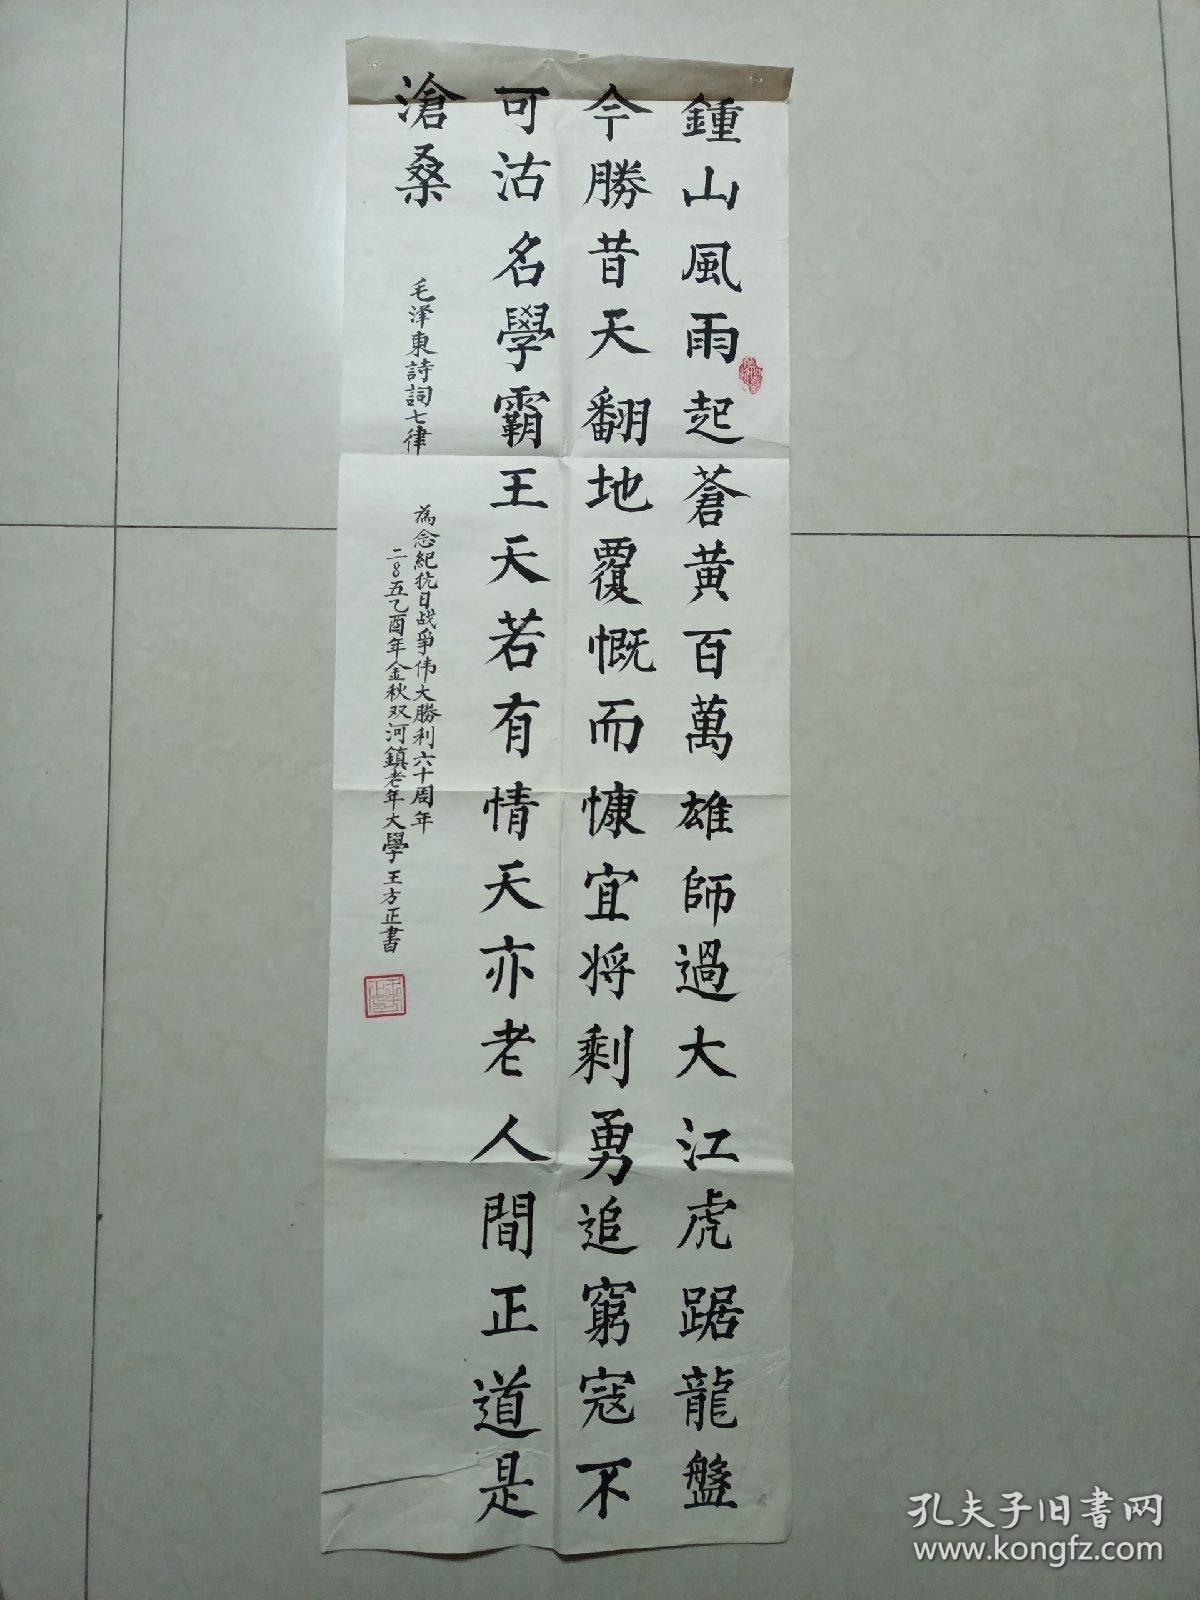 鍾山風雨起蒼黃百萬雄師過大江虎踞龍盤
今勝昔天翻地覆慨而慷宜将剩勇追窮寇不
可沽名學霸王天若有情天亦老人間正道是
滄桑
毛泽東詩詞七律
為念紀抗日战爭伟大勝利六十周年
二00五乙酉年金秋双河鎮老年大學王方正書
孔夫子旧书网
www.kongfz.com